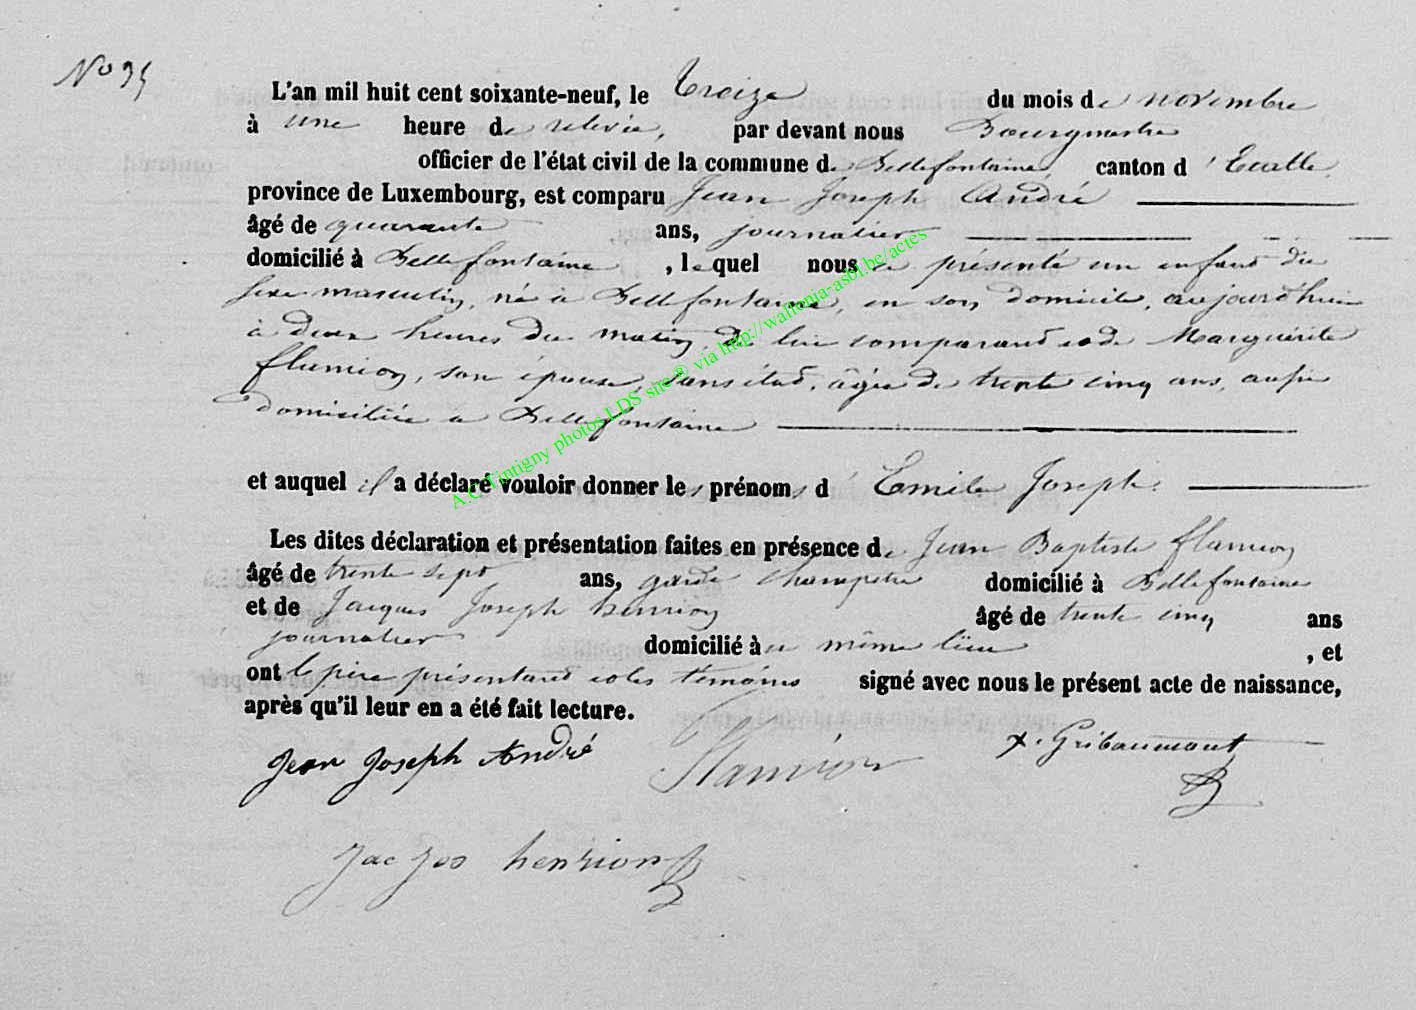 No 95
L'an mil huit cent soixante-neuf, le treize du mois de novembre
à une heure de relevée, par devant nous Bourgmestre
officier de l'état civil de la commune de Bellefontaine, canton d'Etalle,
province de Luxembourg, est comparu Jean Joseph André
âgé de quarante ans, journalier
domicilié à Bellefontaine, lequel nous a présenté un enfant du
sexe masculin, né à Bellefontaine, en son domicile, aujourd'hui
à deux heures du matin, de lui comparant et de Marguérite
flamion, son épouse, sans état, âgée de trente cinq ans, aussi
domiciliée à Bellefontaine
et auquel il a déclaré vouloir donner les prénoms d'Emile Joseph.
Les dites déclaration et présentation faites en présence de Jean Baptiste flamion
âgé de trente sept ans, garde champetre domicilié à Bellefontaine
et de Jacques Joseph henrion âgé de trente cinq ans
journalier domicilié à même lieu, et
ont le père présentant et les témoins signé avec nous le présent acte de naissance,
après qu'il leur en a été fait lecture.
Jean Joseph André Flamion x. Gribaumont
Jac Jos henrion
A.C. Tintigny photos LDS site® via http://wallonia-asbl.be/actes